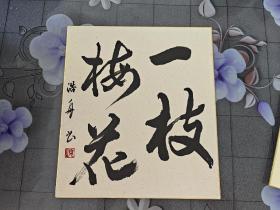 一枝
梅花
浩舟书